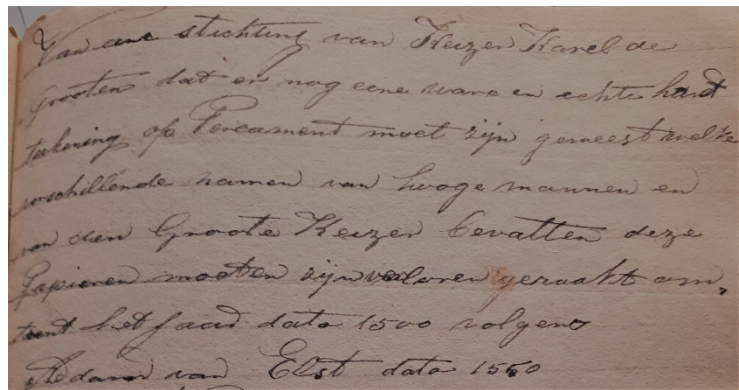 Van eene stichting van Keizer Karel de
Grooten dat er nog eene ware en echte hand
teekening op Percament moet zijn geweest welke
verschillende namen van hooge mannen en
van den Groote Keizer bevatten deze
Papieren moeten zijn verloren geraakt om,
trent het Jaar dato 1500 volgens
Adam van Elst dato 1550